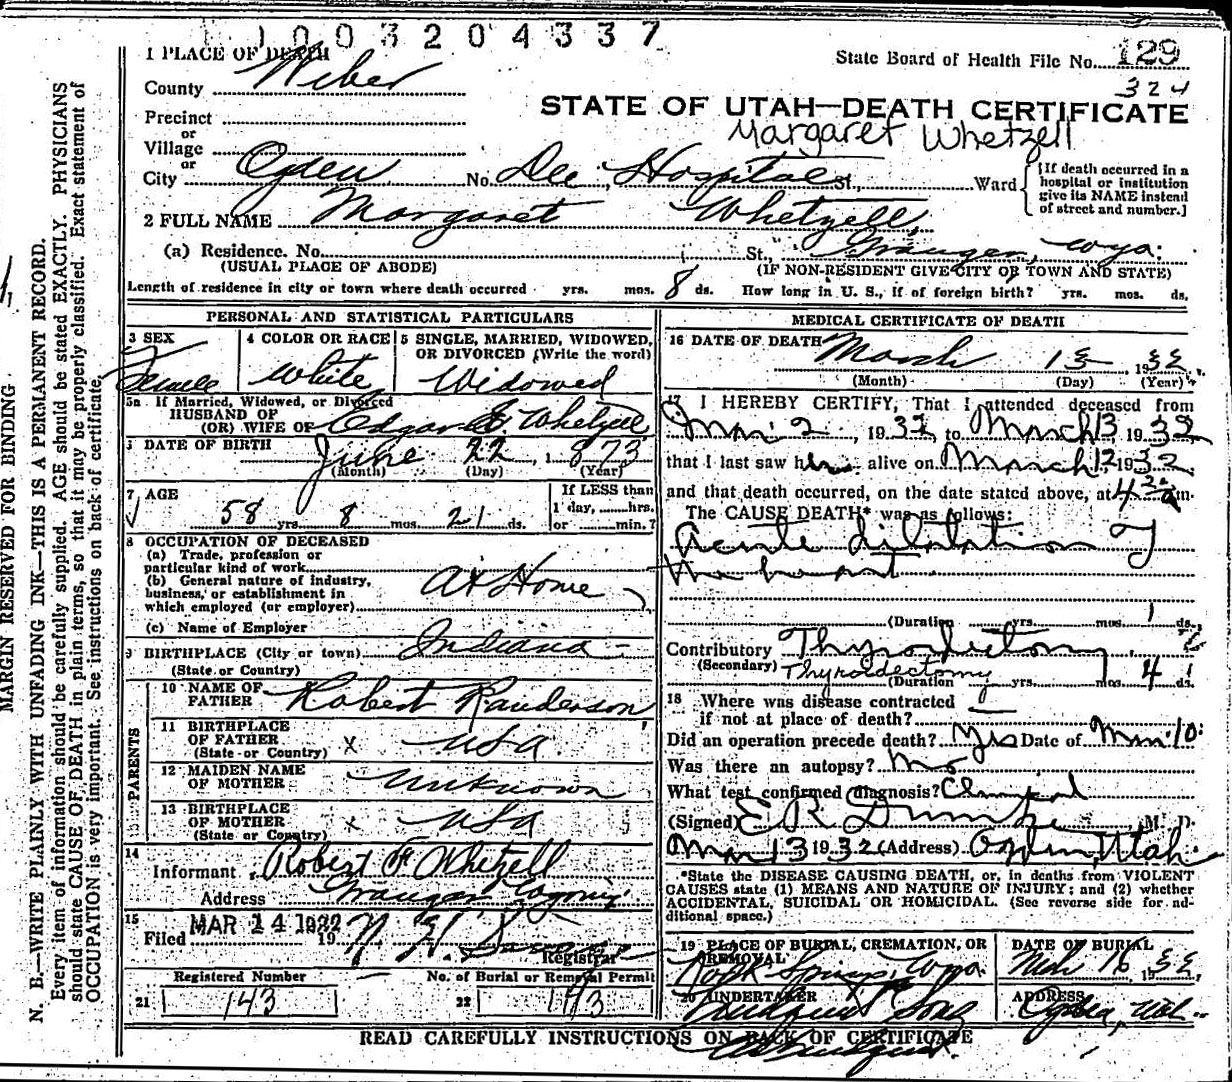 1003204337
1 PLACE OF DEATH
State Board of Health File No. 129
324
County Weber
STATE OF UTAH—DEATH CERTIFICATE
Margaret Whetzell
Precinct
or
Village
or
City Ogden No. Dee Hospital St., Ward
{If death occurred in a hospital or institution give its NAME instead of street and number.]
2 FULL NAME Margaret Whetzell
(a) Residence. No. St., Granger, Wyo.
(USUAL PLACE OF ABODE) (IF NON-RESIDENT GIVE CITY OR TOWN AND STATE)
Length of residence in city or town where death occurred yrs. mos. 8 ds. How long in U. S., if of foreign birth? yrs. mos. ds.
PERSONAL AND STATISTICAL PARTICULARS
3 SEX
Female
4 COLOR OR RACE
White
5 SINGLE, MARRIED, WIDOWED,
OR DIVORCED (Write the word)
Widowed
5a If Married, Widowed, or Divorced
HUSBAND OF
(OR) WIFE OF Edgar Whetzell
DATE OF BIRTH June 22, 1873
(Month) (Day) (Year)
7 AGE
58 yrs. 8 mos. 21 ds.
If LESS than
1 day, hrs.
or min.?
8 OCCUPATION OF DECEASED
(a) Trade, profession or
particular kind of work
(b) General nature of industry,
business, or establishment in
which employed (or employer)
At Home
(c) Name of Employer
9 BIRTHPLACE (City or town) Indiana
(State or Country)
PARENTS
10 NAME OF
FATHER Robert Randerson
11 BIRTHPLACE
OF FATHER x USA
(State or Country)
12 MAIDEN NAME
OF MOTHER Unknown
13 BIRTHPLACE
OF MOTHER x USA
(State or Country)
14
Informant Robert F Whetzell
Address Granger Wyoming
15
Filed MAR 14 1932 19
Registrar
Registered Number
21 143
No. of Burial or Removal Permit
22 143
MEDICAL CERTIFICATE OF DEATH
16 DATE OF DEATH March 13 1932
(Month) (Day) (Year)
17 I HEREBY CERTIFY, That I attended deceased from
Mar 2, 1932, to March 13 1932
that I last saw her alive on March 12 1932
and that death occurred, on the date stated above, at 4 20 a m.
The CAUSE DEATH* was as follows:
Acute dilatation of
the heart
(Duration yrs. mos. 1 ds.
Contributory Thyroidectomy
(Secondary) Thyroidectomy
(Duration yrs. mos. 4 ds.
18 Where was disease contracted
if not at place of death? —
Did an operation precede death? Yes Date of Mar. 10
Was there an autopsy? No
What test confirmed diagnosis? Clinical
(Signed) E R Dumke M. D.
Mar 13 1932 (Address) Ogden, Utah
*State the DISEASE CAUSING DEATH, or, in deaths from VIOLENT
CAUSES state (1) MEANS AND NATURE OF INJURY; and (2) whether
ACCIDENTAL, SUICIDAL OR HOMICIDAL. (See reverse side for ad-
ditional space.)
19 PLACE OF BURIAL, CREMATION, OR
REMOVAL
Rock Springs, Wyo.
DATE OF BURIAL
Mch 16 1932
20 UNDERTAKER
Lindquist & Sons
ADDRESS
Ogden, Utah
READ CAREFULLY INSTRUCTIONS ON BACK OF CERTIFICATE
MARGIN RESERVED FOR BINDING
N. B.—WRITE PLAINLY WITH UNFADING INK—THIS IS A PERMANENT RECORD.
Every item of information should be carefully supplied. AGE should be stated EXACTLY. PHYSICIANS
should state CAUSE OF DEATH in plain terms, so that it may be properly classified. Exact statement of
OCCUPATION is very important. See instructions on back of certificate.